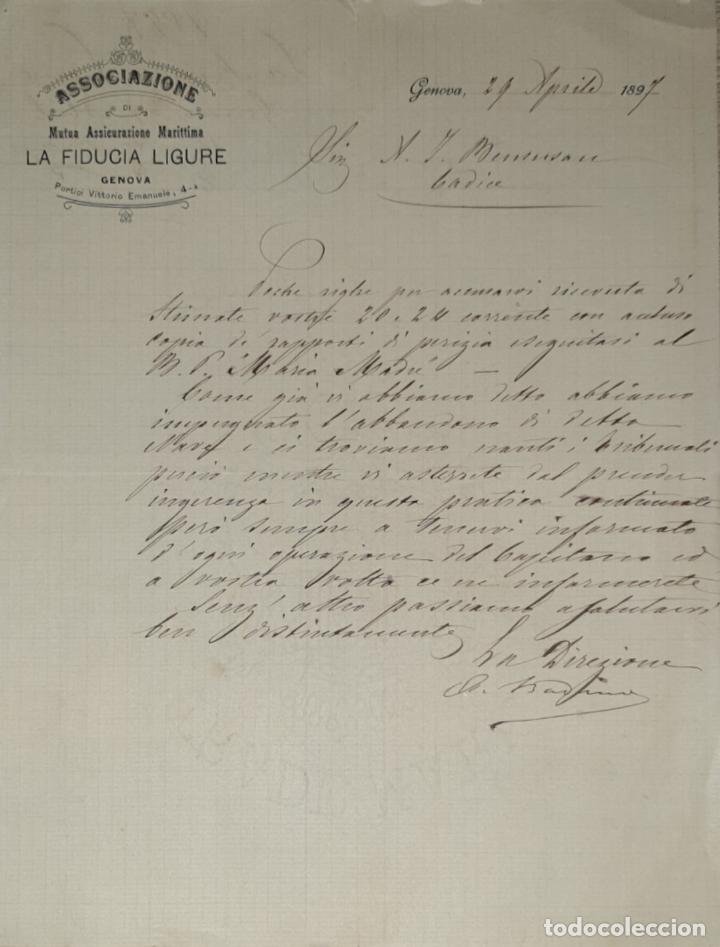 ASSOCIAZIONE
DI
Mutua Assicurazione Marittima
LA FIDUCIA LIGURE
GENOVA
Portici Vittorio Emanuele, 4-
Genova, 29 Aprile 1897
Sig A. J. Bensusan
Cadice
Poche righe per accusarvi ricevuta di
stimate vostre 20 e 24 corrente con
copia de rapporti di perizia eseguitasi al
B. P. "Maria Madre" —
Come già vi abbiamo detto abbiamo
impugnato l'abbandono di detto
Nave e ci troviamo nanti i tribunali
perciò mentre vi asterrete dal prender
ingerenza in questa pratica continuate
però sempre a tenervi informato
d'ogni operazione del Capitano ed
a vostra volta ce ne informerete
Senz'altro passiamo a salutarvi
ben distintamente
La Direzione
todocoleccion